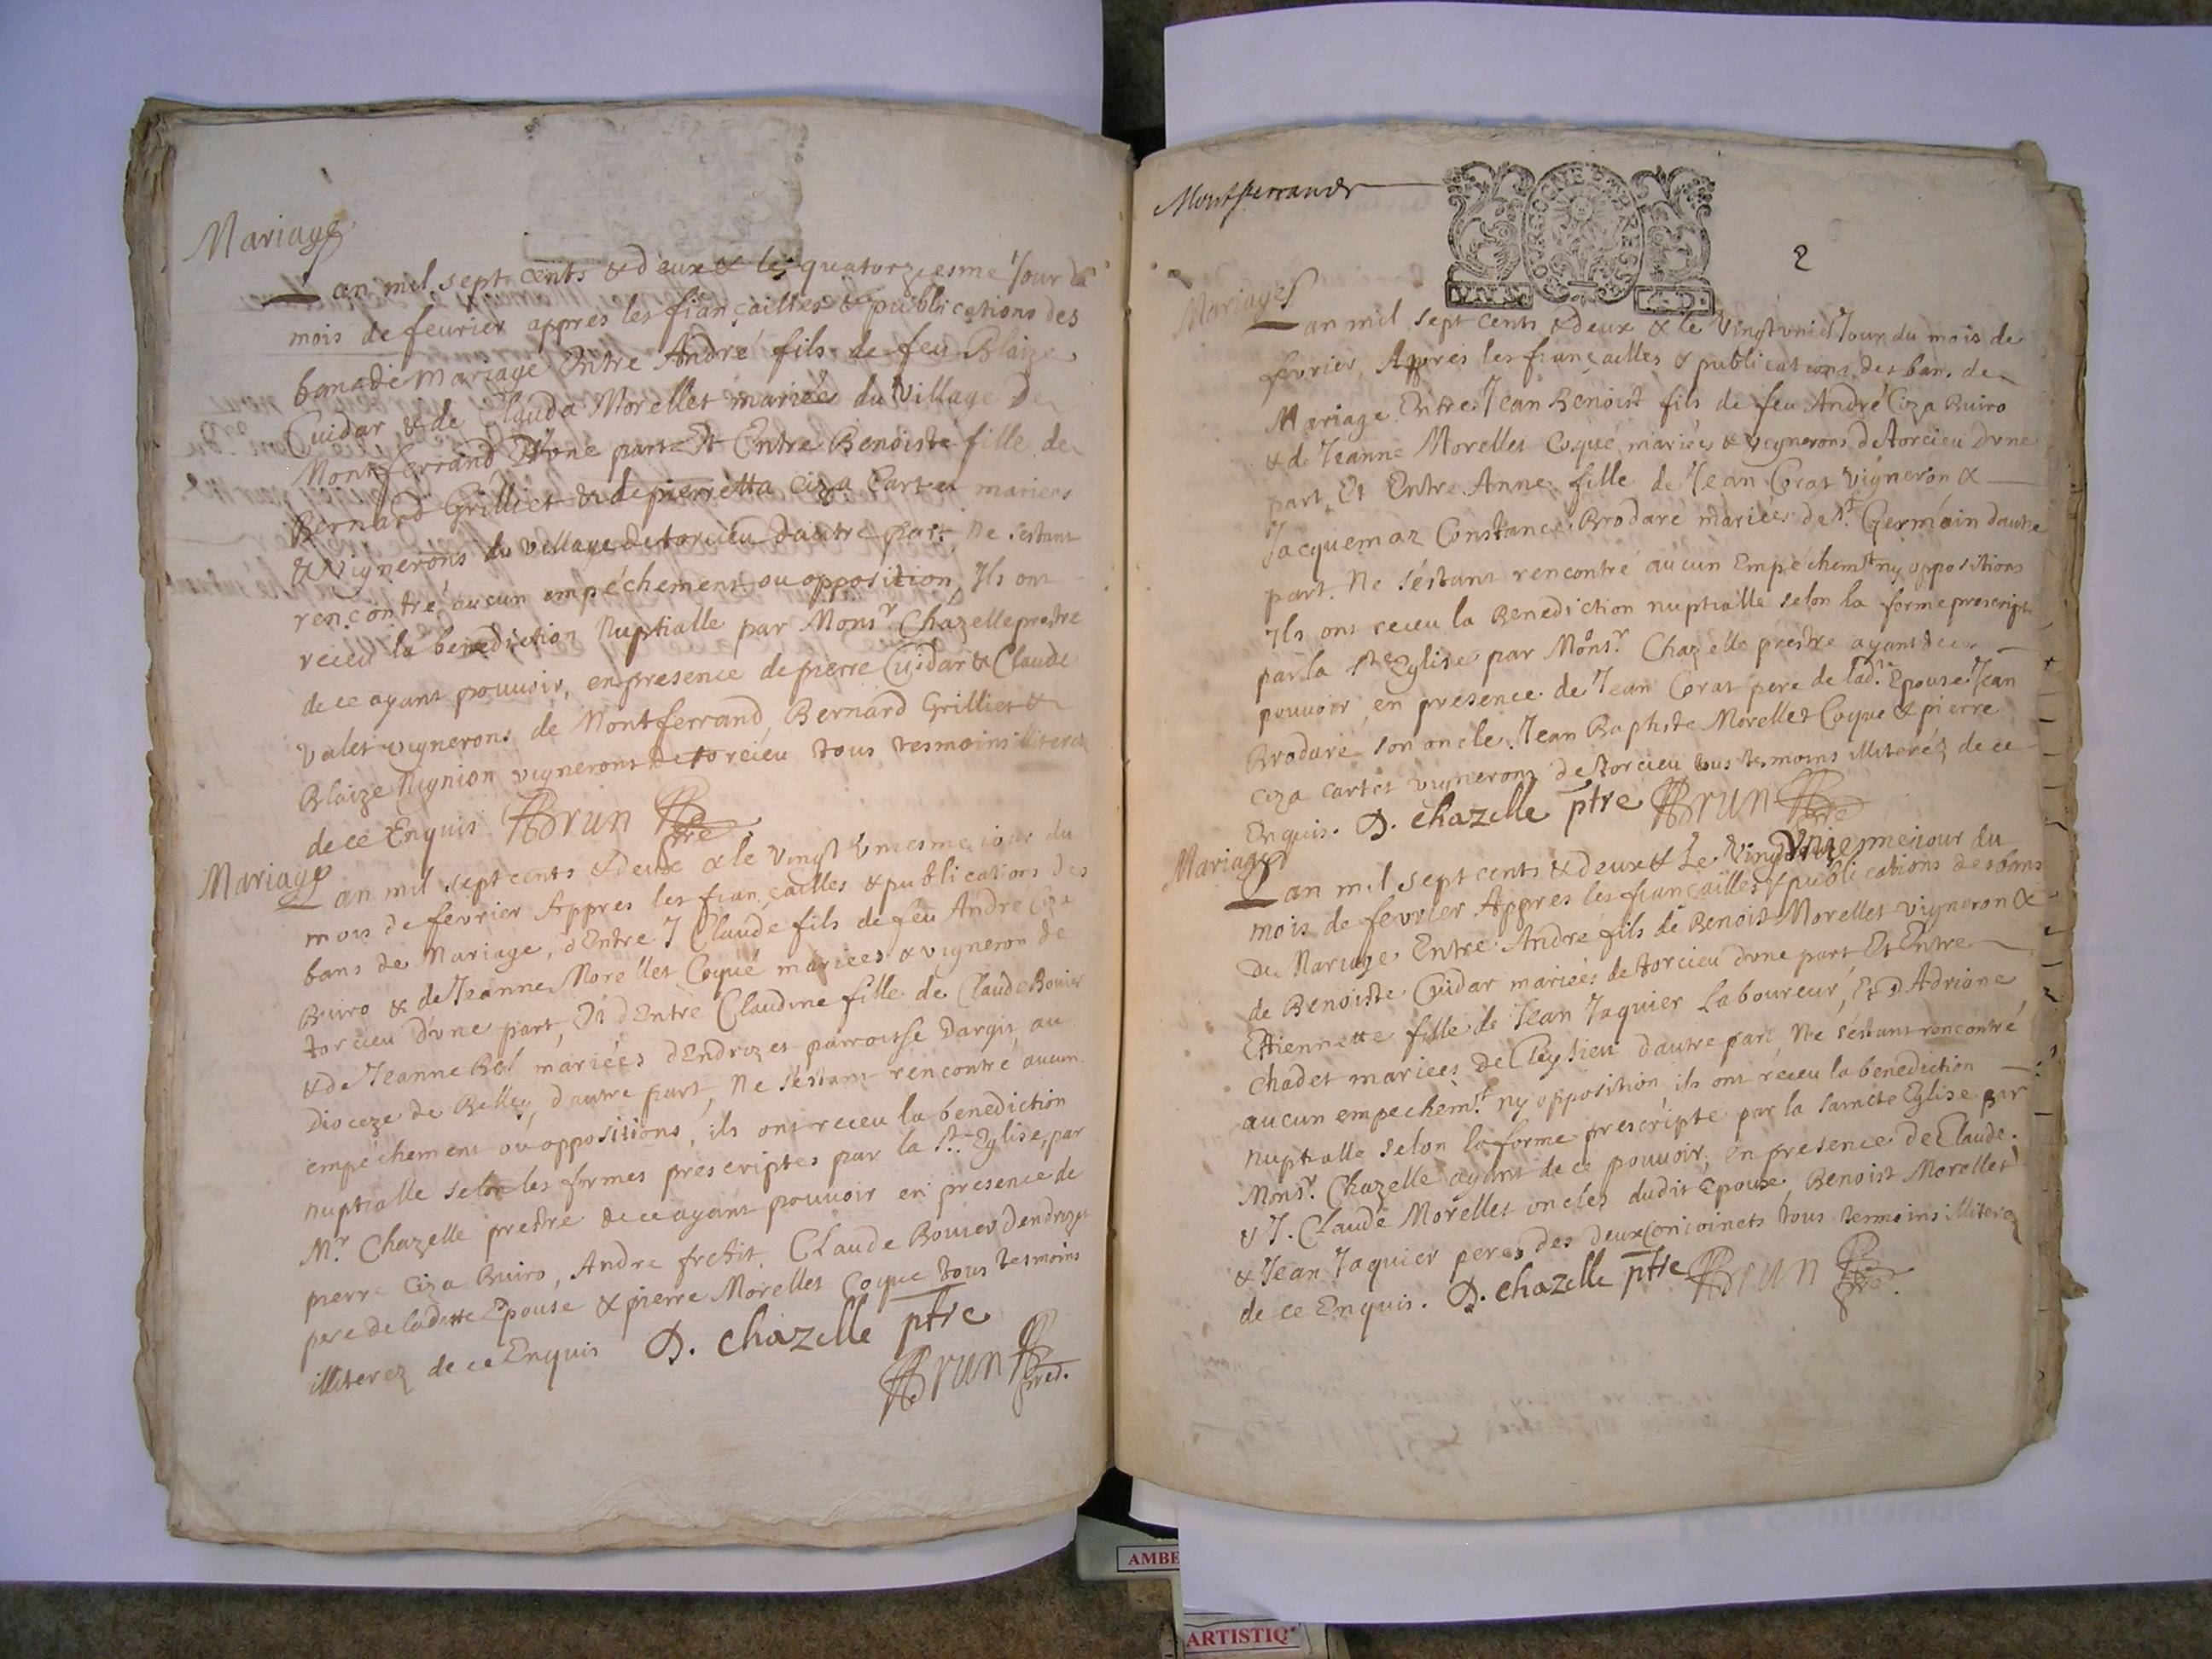 Mariage
L an mil sept cents & deux & le quatorziesme Jour du
mois de feurier appres les fiançailles & publications des
bans de Mariage Entre André fils de feu Blaize
Cuidar & de Clauda Morellet mariées du Village De
Montferrand D'vne part Et Entre Benoiste fille de
Bernard Grilliet & de pierretta Ciza Cartet mariers
& Vignerons du village de torcieu dautre part, Ne sestant
rencontré aucun empéchement ou opposition, Ils ont
receu la benediction Nuptialle par Monsr Chazelle prestre
de ce ayant pouuoir, en presence de pierre Cuidar & Claude
Valet vignerons de Montferrand, Bernard Grilliet &
Blaize vignerons de torcieu tous tesmoins illiterez
de ce Enquis Brun ptre
Mariage
L an mil sept cents & deux & le Vingt Vniesme iour du
mois de fevrier Appres les fiançailles & publications des
bans de Mariage, d'Entre J Claude fils de feu André Ciza
Buiro & de Jeanne Morellet Coqué mariees & vigneron de
torcieu d'vne part, Et d'Entre Claudine fille de Claude Bouier
& de Jeanne Bel mariées d'Endrozet parroisse Dargis, au
Dioceze de Belley, d'autre part, Ne séstant rencontré aucun
empéchement ou oppositions, ils ont receu la benediction
nuptialle selon les formes prescriptes par la Ste Eglise, par
Mr Chazelle prestre de ce ayant pouuoir en presence de
pierre Ciza Buiro, Andre , Claude Bouier
pere de laditte Epouse & pierre Morellet Coque tous tesmoins
illiterez de ce Enquis D. Chazelle ptre
Brun ptre.
Montferrand
BOURGOGNE ET BRESSE
2
Mariage
L an mil sept cents & deux & le Vingtvnie Jour du mois de
fevrier, Appres les fiançailles & publications des bans de
Mariage Entre Jean Benoist fils de feu André Ciza Buiro
& de Jeanne Morellet Coqué mariées & vignerons de torcieu Dvne
part, Et Entre Anne fille de Jean Corat Vigneron &
Jacquemaz Constance Brodaré mariées de St Germain dautre
part. Ne séstant rencontré aucun Empéchemt ny oppositions
Ils ont receu la Benediction nuptialle selon la forme prescripte
par la Ste Eglise par Monsr. Chazelle prestre ayant de ce
pouuoir, en presence de Jean Corat pere de ladte Epouse Jean
Brodaré son oncle, Jean Baptiste Morellet Coque & pierre
Ciza Cartet vignerons de torcieu tous tesmoins illiteréz de ce
Enquis. D. Chazelle ptre Brun ptre
Mariage
L an mil sept cents & deux & Le Vingt Vniesme iour du
mois de fevrier Appres les fiançailles & publications des bans
De Mariage Entre André fils de Benoist Morellet vigneron &
de Benoiste Cuidar mariées de torcieu dvne part Et Entre
Ettiennette fille de Jean Jaquier Laboureur, Et D Adriane
Chadet mariees de Cleysieu d'autre part, Ne séstant rencontré
aucun empechemt ny opposition, ils ont réceu la benediction
Nuptialle selon la forme prescripte par la saincte Eglise par
Monsr. Chazelle ayant de ce pouuoir, en presence de Claude
& J. Claude Morellet oncles dudit Epoux Benoist Morellet
& Jean Jaquier peres des deux Conioincts tous tesmoins illiterez
de ce Enquis. D. Chazelle ptre Brun ptre.
AMBE
ARTISTIQ